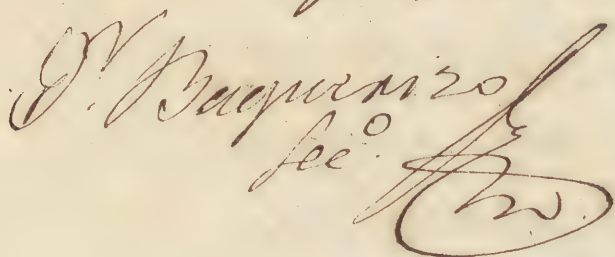 Dr. Baquerizo
Sec.o